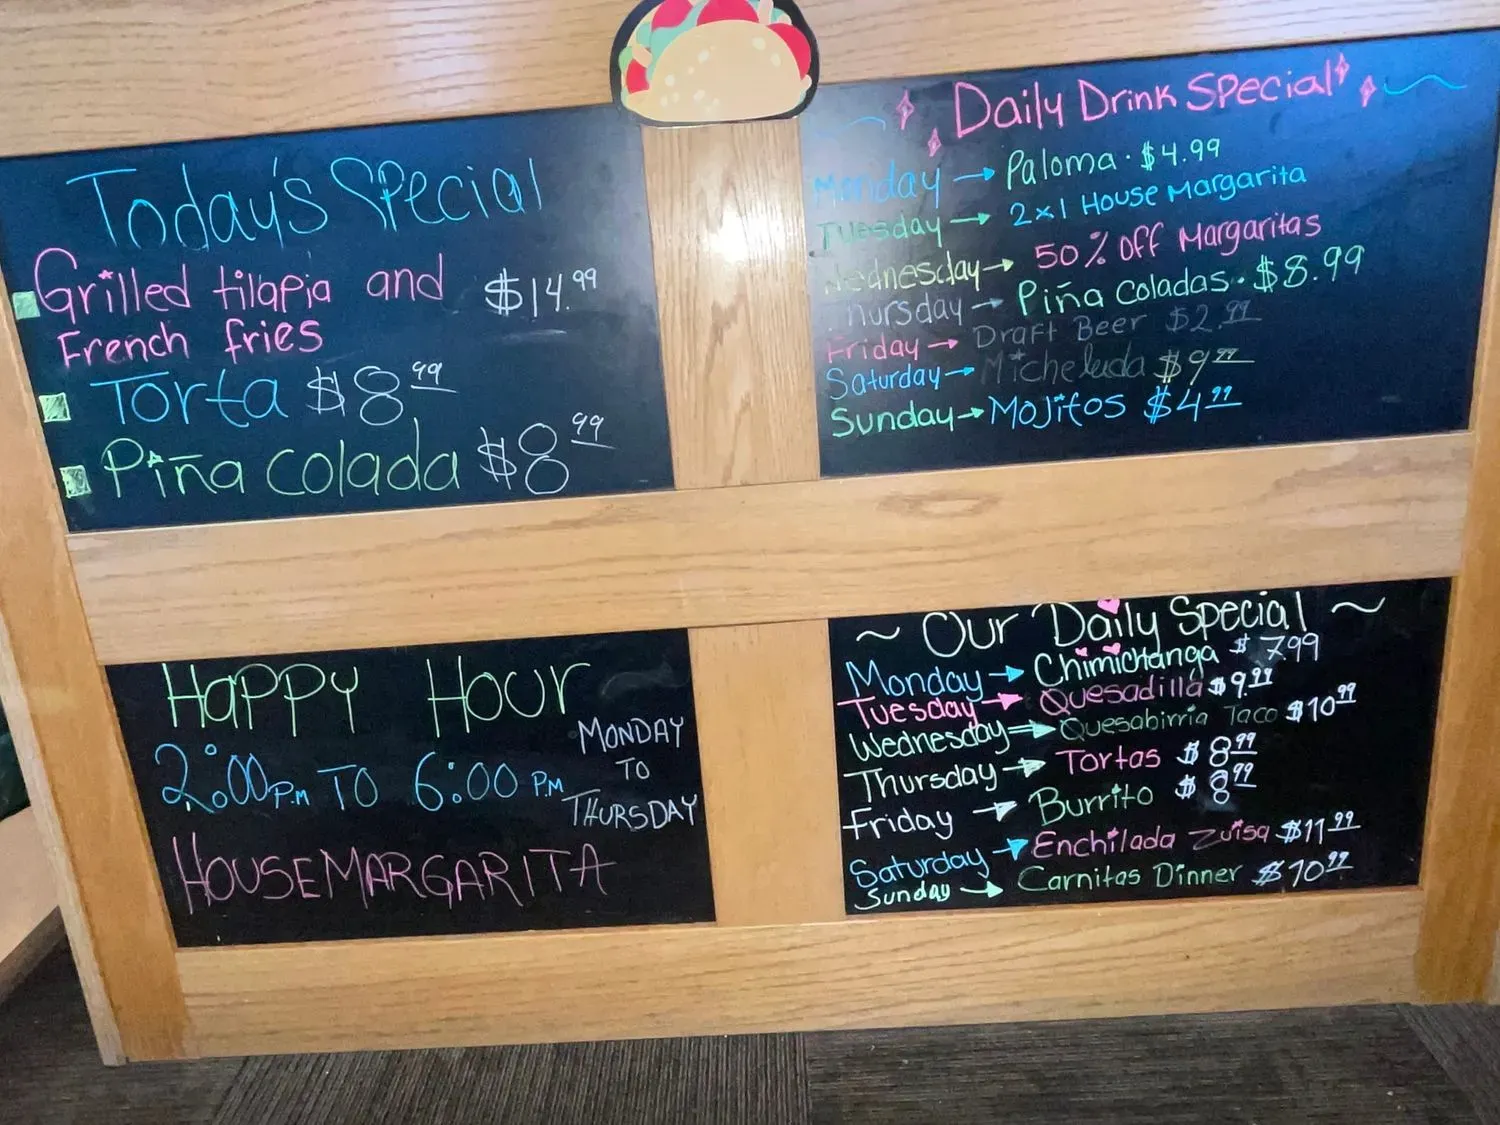 Today's Special
Grilled tilapia and $14.99
French fries
Torta $8.99
Piña colada $8.99
Daily Drink Special
Monday → Paloma. $4.99
Tuesday → 2x1 House Margarita
Wednesday → 50% off Margaritas
Thursday → Piña Coladas.. $8.99
Friday → Draft Beer $2.99
Saturday → Michelada $9.99
Sunday → Mojitos $4.99
Happy Hour
2:00 P.M TO 6:00 P.M
MONDAY
TO
THURSDAY
HOUSE MARGARITA
~ Our Daily Special ~
Monday → Chimichanga $7.99
Tuesday → Quesadilla $9.99
Wednesday → Quesabirria Taco $10.99
Thursday → Tortas $8.99
Friday → Burrito $8.99
Saturday → Enchilada Zuisa $11.99
Sunday → Carnitas Dinner $10.99